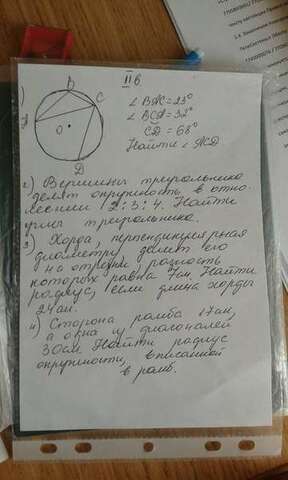 II б
1)
B
C
A
O
D
∠ BAC = 23°
∠ BCA = 32°
CD = 68°
Найти ∠ ACD
2) Вершины треугольника
делят окружность в отно-
шении 2:3:4. Найти
углы треугольника.
3) Хорда, перпендикулярная
диаметру, делит его
на отрезки, разность
которых равна 7см. Найти
радиус, если длина хорды
24см.
4) Сторона ромба 17см,
а одна из диагоналей
30см. Найти радиус
окружности, вписанной
в ромб.